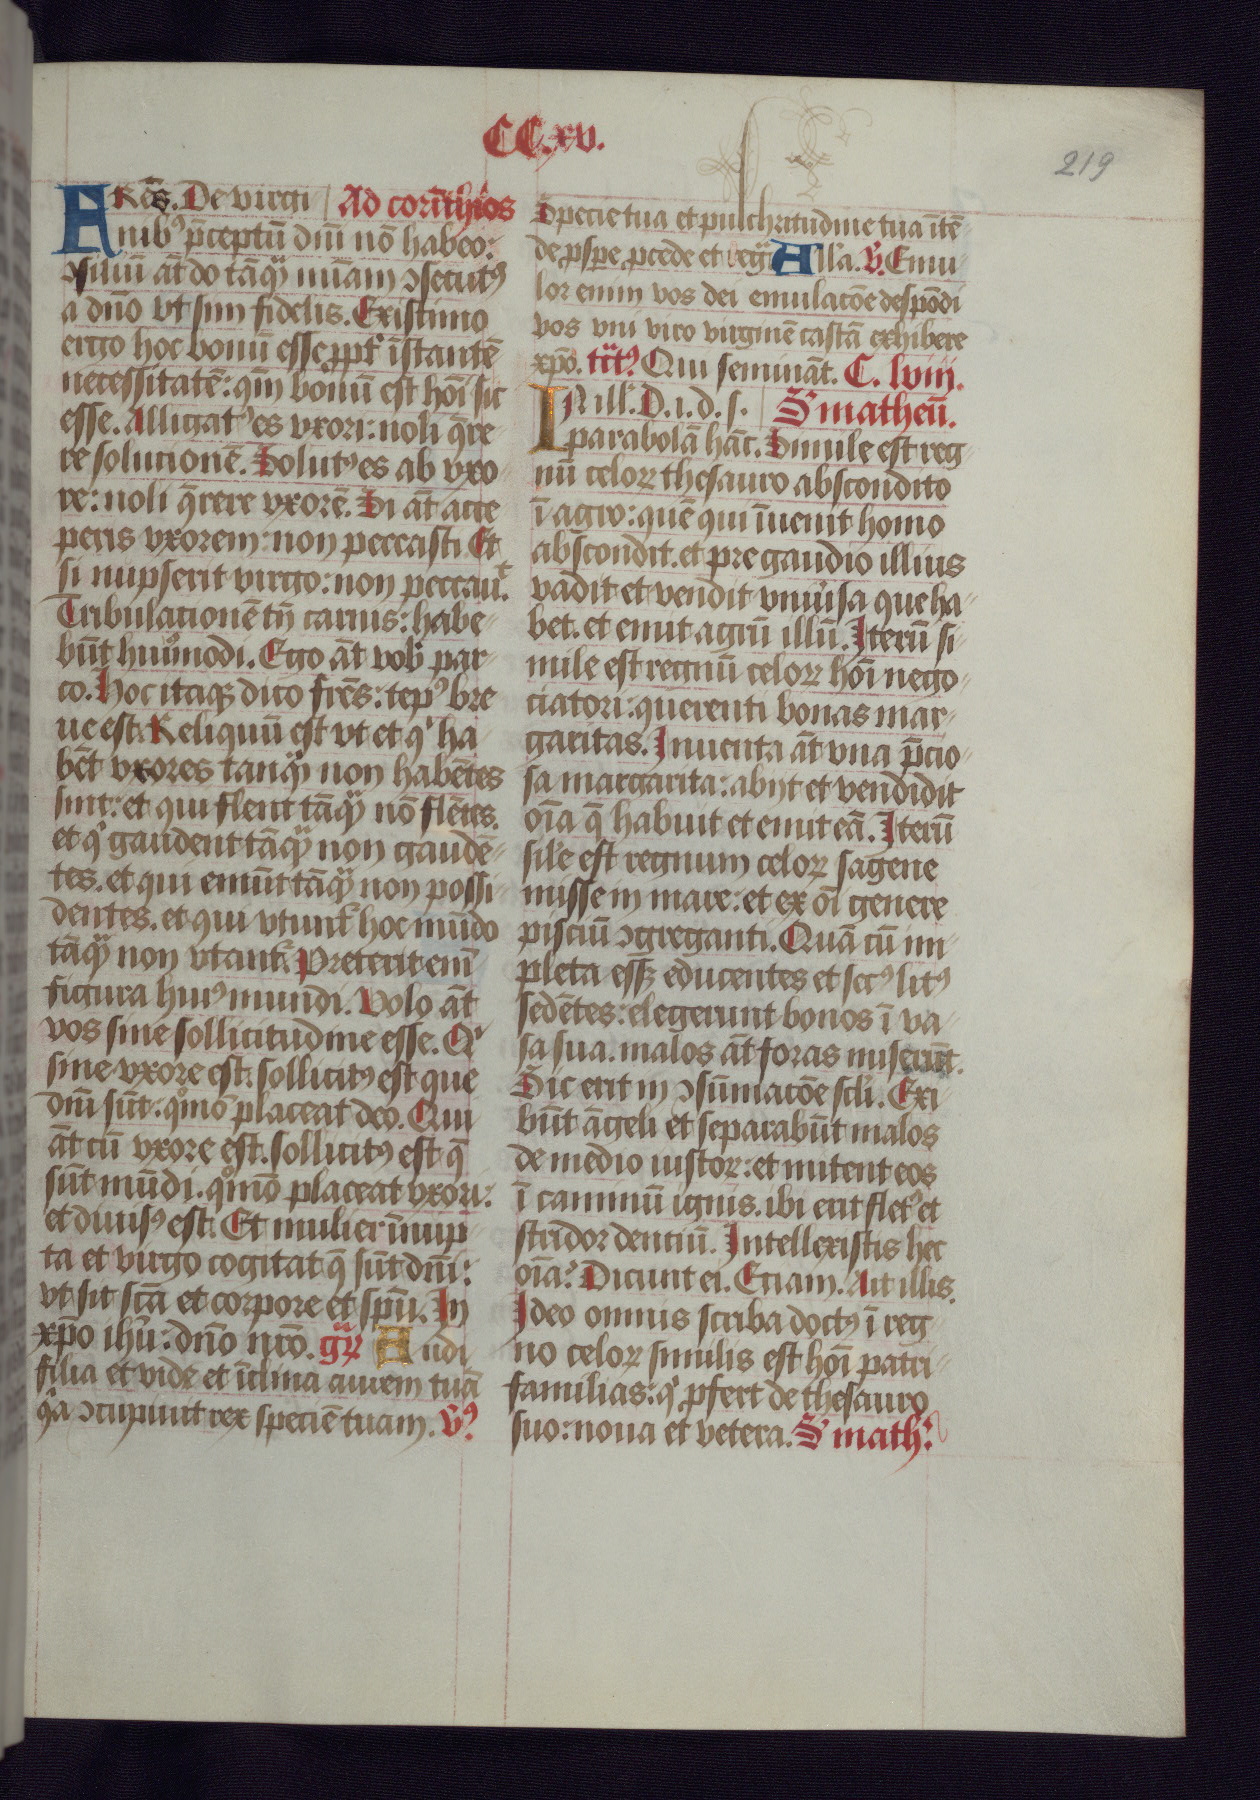 CC.xv.
219
FRēs. De virgi Ad corīthios
nibꝰ p̄ceptū dn̄i nō habeo:
ↄsiliū āt do tāqͣ mīam ↄsecutꝰ
a dn̄o vt sim fidelis. Existimo
ergo hoc bonū esse ꝓpt̄ īstantē
necessitatē: qm̄ bonū est hōi sic
esse. Alligatꝰ es vxori: noli q̄re
re solucionē. Solutꝰ es ab vxo
re: noli q̄rere vxorē. Si āt acce
peris vxorem: non peccasti. Et
si nupserit virgo: non peccauᵗ.
Tribulationē tn̄ carnis: habe
būt huiꝰmodi. Ego āt vob̄ par
co. Hoc itaqꝫ dico frēs: tēpꝰ bre
ue est. Reliquū est vt et qͥ ha
bēt vxores tanqͣ non habētes
sint: et qui flent tāqͣ nō flētes.
et qͥ gaudent tāqͣ non gaudē
tes. et qui emūt tāqͣ non possi
dentes. et qui vtunt̄ hoc mūdo
tāqͣ non vtant̄. Preterit em̄
figura huiꝰ mundi. Volo āt
vos sine sollicitudine esse. Qͥ
sine vxore est: sollicitꝰ est que
dn̄i sūt: qͦmō placeat deo. Qui
āt cū vxore est. sollicitꝰ est q̄
sūt mūdi. qͦmō placeat vxori:
et diuisꝰ est. Et mulier īnup
ta et virgo cogitat q̄ sūt dn̄i:
vt sit scā et corpore et spū. In
xp̄o ihū: dn̄o nr̄o. gͬ Audi
filia et vide et īclina aurem tuā
qͣ ↄcupiuit rex speciē tuam. Vꝰ
Specie tua et pulchritudine tua ītē
de ꝓspe ꝓcede et regͣ Alla. V. Emu
lor enim vos dei emulacōe despōdi
vos vni viro virginē castā exhibere
xp̄o. tc̄tꝰ Qui semināt. C. lviij.
IN ill. D. i. d. s. S matheū.
parabolā hāc. Simile est reg
nū celoꝝ thesauro abscondito
ī agro: quē qui īuenit homo
abscondit. et pre gaudio illius
vadit et vendit vniūsa que ha
bet. et emit agrū illū. Iterū si
mile est regnū celoꝝ hōi nego
ciatori: querenti bonas mar
garitas. Inuenta āt vna p̄cio
sa margarita: abijt et vendidit
oīa q̄ habuit et emit eā. Iterū
sile est regnum celoꝝ sagene
misse in mare: et ex oī genere
pisciū ↄgreganti. Quā cū im
pleta essꝫ educentes et secꝰ litꝰ
sedētes: elegerunt bonos ī va
sa sua. malos āt foras miserūt.
Sic erit in ↄsūmacōe scli. Exi
būt āgeli et separabūt malos
de medio iustoꝝ: et mittent eos
ī caminū ignis. ibi erit fletꝰ et
stridor dentiū. Intellexistis hec
oīa? Dicunt ei. Etiam. Ait illis.
Ideo omnis scriba doctꝰ ī reg
no celoꝝ similis est hōi patri
familias: qͥ ꝓfert de thesauro
suo: noua et vetera. S math.